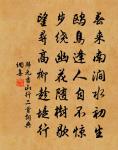 春來南澗水初生
鷗鳥逢人自不驚
步繞幽花隨樹歇
望尋高柳趁堤行